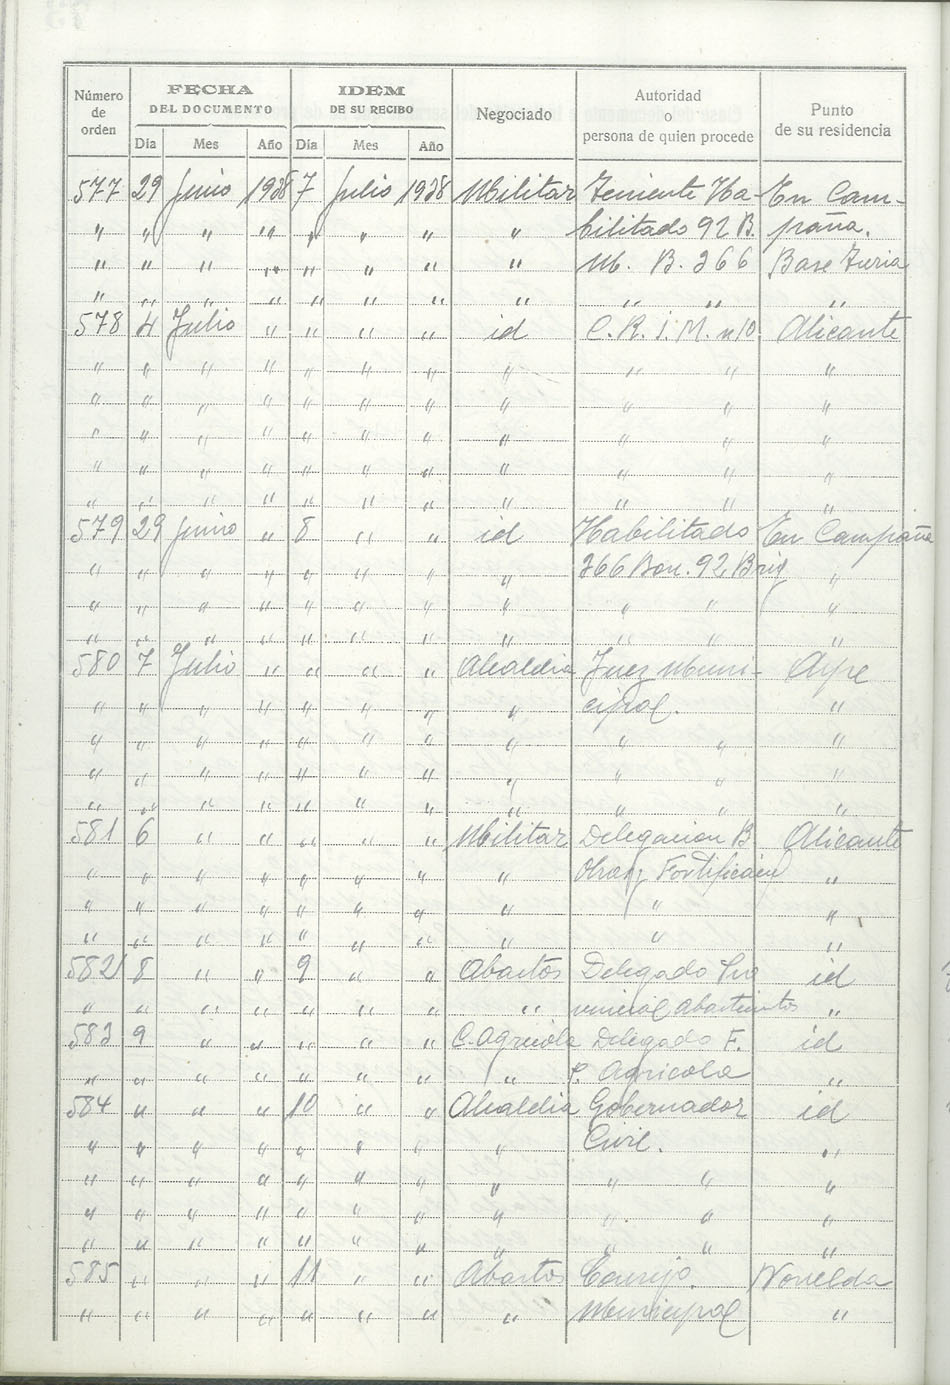 Número de orden | FECHA DEL DOCUMENTO | IDEM DE SU RECIBO | Negociado | Autoridad o persona de quien procede | Punto de su residencia
Día | Mes | Año | Día | Mes | Año
577 29 Junio 1938 7 Julio 1938 Militar Teniente Ha- En Cam-
" " " " " " " " bilitado 92 B. paña.
" " " " " " " " M. B. 366 Base Turia
" " " " " " " " " " "
578 4 Julio " " " " id C.R.I.M. n 10. Alicante
" " " " " " " " " " "
" " " " " " " " " " "
" " " " " " " " " " "
" " " " " " " " " " "
" " " " " " " " " " "
579 29 Junio " 8 " " id Habilitado En Campaña
" " " " " " " " 366 Bon. 92 Brig "
" " " " " " " " " " "
" " " " " " " " " " "
580 7 Julio " " " " Alcaldia Juez Muni- Aspe
" " " " " " " " cipal. "
" " " " " " " " " " "
" " " " " " " " " " "
" " " " " " " " " " "
581 6 " " " " " Militar Delegacion B Alicante
" " " " " " " " Obras Fortificacien "
" " " " " " " " " "
" " " " " " " " " "
582 8 " " 9 " " Abastos Delegado Pro id
" " " " " " " " vincial Abastmtos "
583 9 " " " " " C. Agricola Delegado F. id
" " " " " " " " P. Agricola "
584 " " " 10 " " Alcaldia Gobernador id
" " " " " " " " Civil. "
" " " " " " " " " " "
" " " " " " " " " " "
" " " " " " " " " " "
585 " " " 11 " " Abastos Consejo Novelda
" " " " " " " " Municipal "